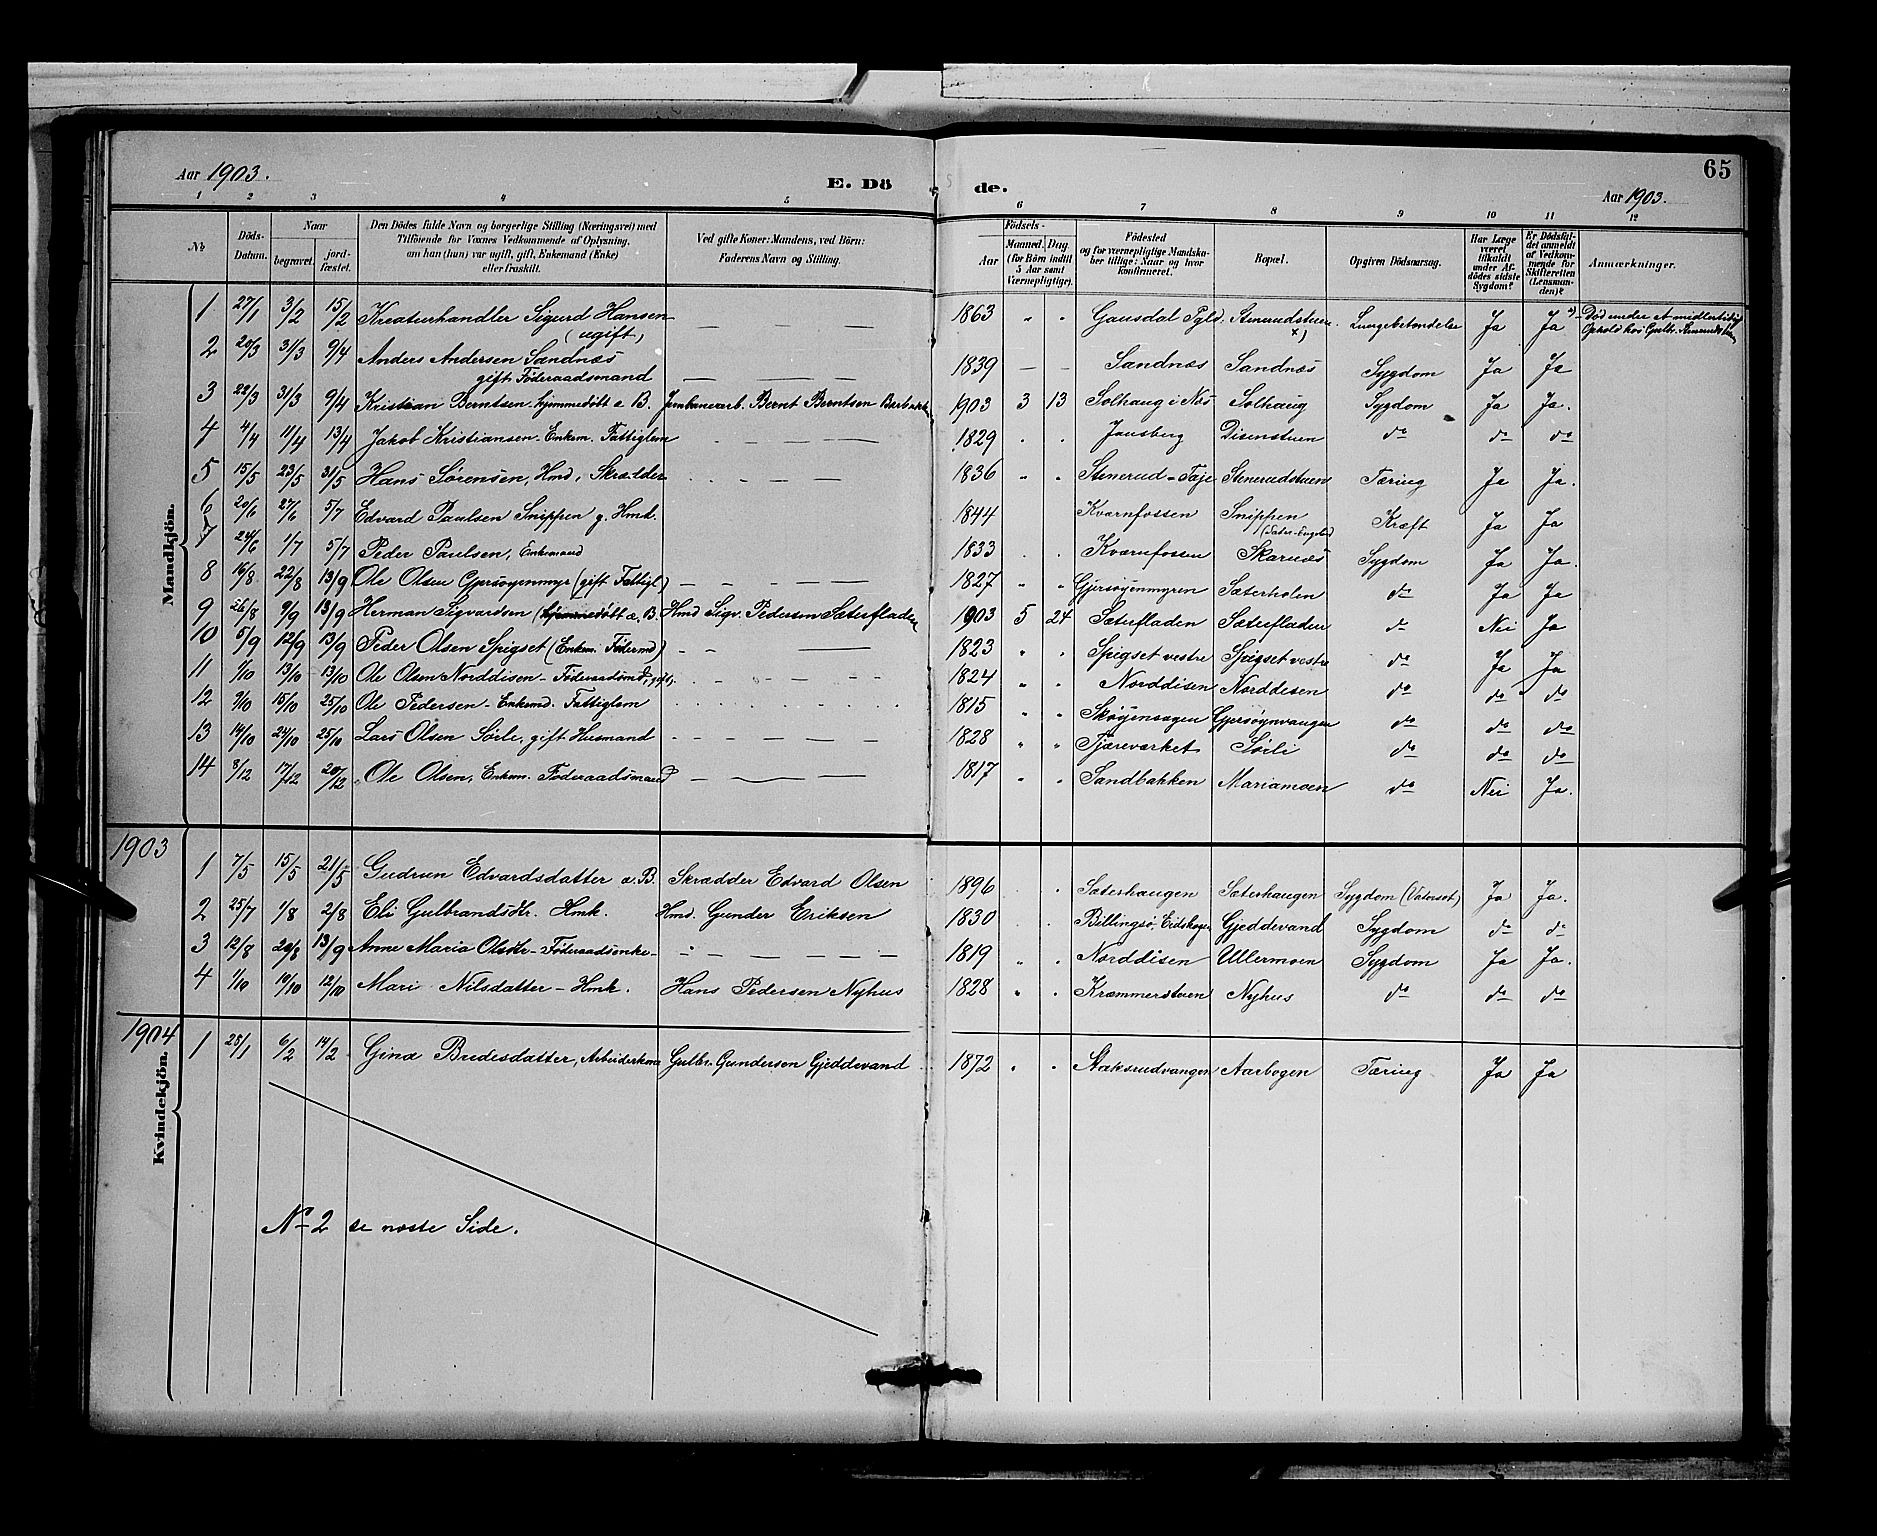 65
Aar 1903.
E. Dö de.
Aar 1903.
1 2 3 4 5 6 7 8 9 10 11 12
No
Döds-Datum.
Naar
begravet.
jord-fæstet.
Den Dödes fulde Navn og borgerlige Stilling (Næringsvei) med
Tilföiende for Voxnes Vedkommende af Oplysning,
om han (hun) var ugift, gift, Enkemand (Enke)
eller fraskilt.
Ved gifte Koner: Mandens, ved Börn:
Faderens Navn og Stilling.
Födsels-
Aar
Maaned. Dag
(for Börn indtil
5 Aar samt
Værnepligtige).
Födested
og for værnepligtige Mandska-
ber tillige: Naar og hvor
konfirmeret.
Bopæl.
Opgiven Dödsaarsag.
Har Læge
været
tilkaldt
under Af-
dödes sidste
Sygdom?
Er Dödsfal-
det anmeldt
af Vedkom-
mende for
Skifteretten
(Lensman-
den)?
Anmærkninger.
Mandkjön.
1 27/1 3/2 15/2 Kreaturhandler Sigurd Hansen — — — 1863 " " Gausdal Pgld. Stenerudstuen Lungebetændelse Ja Ja x) Död under et midlertidig
(ugift) x) Ophold hos Gulbr.
2 20/3 31/3 9/4 Anders Andersen Sandnæs 1839 — — Sandnæs Sandnæs Sygdom Ja Ja
gift Föderaadsmand — — —
3 22/3 31/3 9/4 Kristian Berntsen hjemmedöbt e B. Jernbanearb. Bernt Berntsen 1903 3 13 Solhaug i Næs Solhaug Sygdom Ja Ja.
4 4/4 11/4 13/4 Jakob Kristiansen Enkem. Fattiglem 1829 . . Jansberg Disenstuen do do do
5 15/5 23/5 31/5 Hans Sörensen, Hmd, Skrædder 1836 " . Stenerud - Stenerudstuen Tæring Ja Ja.
6 20/6 27/6 5/7 Edvard Paulsen Snippen g. Hmd. 1844 Kværnfossen Snippen Kræft Ja Ja
7 24/6 1/7 5/7 Peder Paulsen, Enkemand 1833 . . Kværnfossen Skarnæs Sygdom Ja Ja.
8 16/8 22/8 13/9 Ole Olsen Gjersöyenmyr (gift Fattigl) — — — — 1827 " " Gjersöyenmyren Sæterholen do Ja Ja
9 26/8 9/9 13/9 Herman Sigvardsen (hjemmedöbt e. B. Hmd Sigv. Pedersen Sæterfladen 1903 5 24 Sæterfladen Sæterfladen do Nei Ja
10 5/9 12/9 13/9 Peder Olsen Spigset (Enkem. Födermd) 1823 " . Spigset vestre Spigset vestre do Ja Ja
11 7/10 13/10 13/10 Ole Olsen Norddisen - Föderaadsmd, gift, 1824 " . Norddisen Norddisen do do do
12 9/10 15/10 25/10 Ole Pedersen - Enkemd. Fattiglem 1815 " . Skøyensagen Gjersöynvangen do do do
13 14/10 24/10 25/10 Lars Olsen Sörli, gift Husmand — — — — 1828 " " Tjæreværket Sörli do do do
14 3/12 17/12 20/12 Ole Olsen, Enkem. Föderaadsmand — — — 1817 " . Sandbakken Mariamoen do Nei Ja.
1903
1 7/5 15/5 21/5 Gudrun Edvardsdatter e. B. Skrædder Edvard Olsen 1896 . . Sæterhaugen Sæterhaugen Sygdom (Vatersot) Ja Ja.
2 25/7 1/8 2/8 Eli Gulbrandsdtr. Hmk. Hmd. Gunder Eriksen 1830 . . Billingsö, Eidskogen Gjeddevand Sygdom do do
3 12/8 20/8 13/9 Anne Maria Olsdtr - Föderaadsenke - 1819 " . Norddisen Ullermoen Sygdom Ja Ja.
4 1/10 10/10 12/10 Mari Nilsdatter - Hmk. Hans Pedersen Nyhus 1828 " . Kræmmerstuen Nyhus do do do
1904
Kvindekjön.
1 28/1 6/2 14/2 Gina Bredesdatter, Arbeiderkone Gulbr. Gundersen Gjeddevand 1872 . . Aarbogen Tæring Ja Ja
No 2 se næste Side.